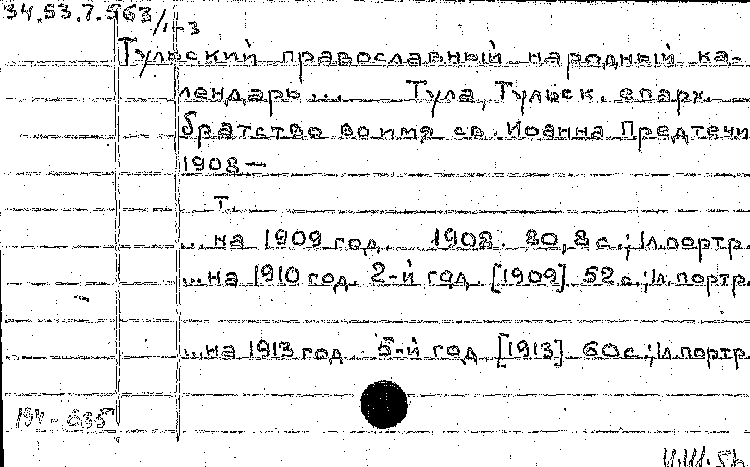 34.53.7.563/1-3
Тульский православный народный ка-
лендарь... Тула, Тульск. епарх.
братство во имя св. Иоанна Предтечи
1908—
т.
...на 1909 год. 1908. 80, 8 с.; 1 л. портр.
...на 1910 год. 2-й год [1909] 52 с.; 1 л. портр.
...на 1913 год. 5-й год [1913] 60 с.; 1 л. портр.
194-635